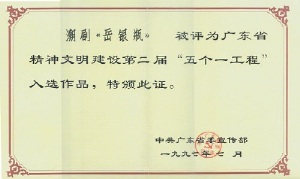 潮剧《岳银瓶》 被评为广东省
精神文明建设第二届“五个一工程”
入选作品，特颁此证。
中共广东省委宣传部
一九九七年 七 月